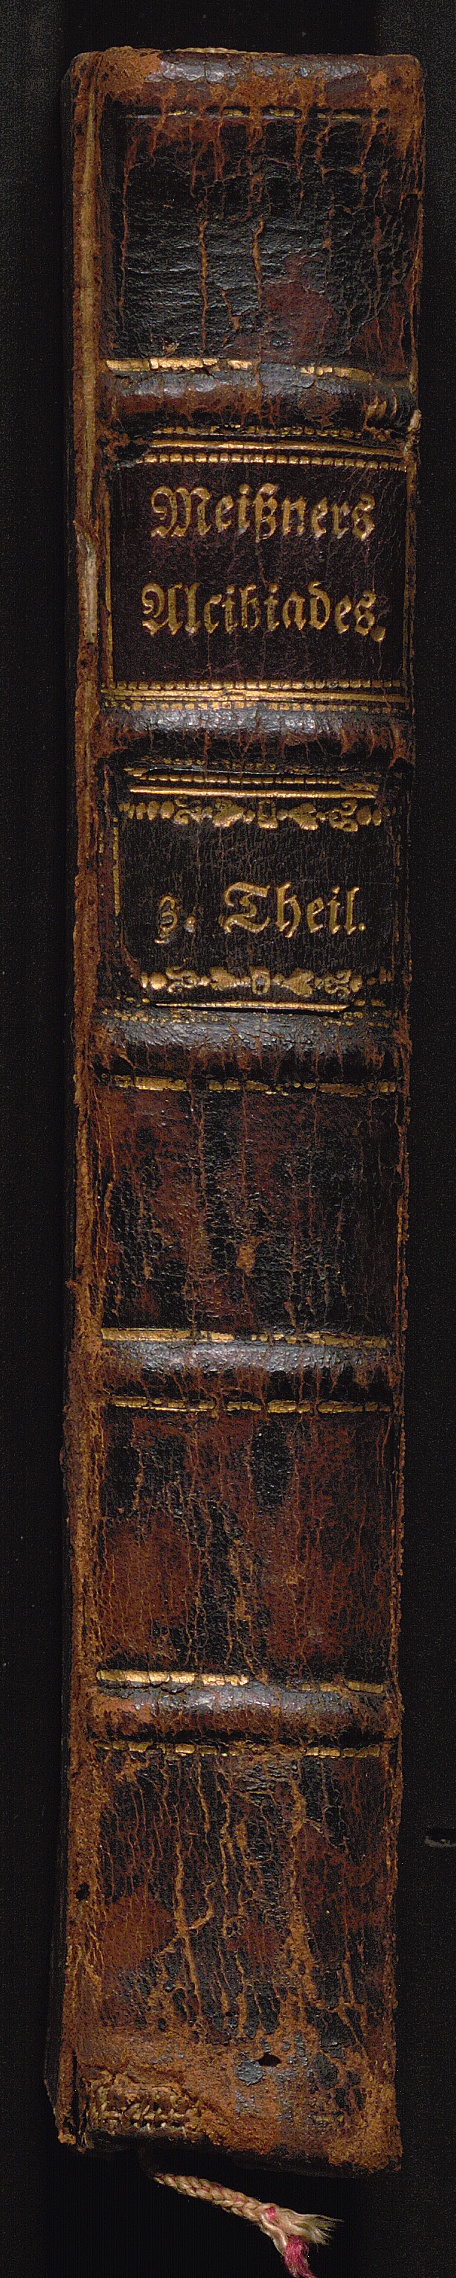 Meißners
Alcibiades.
3. Theil.